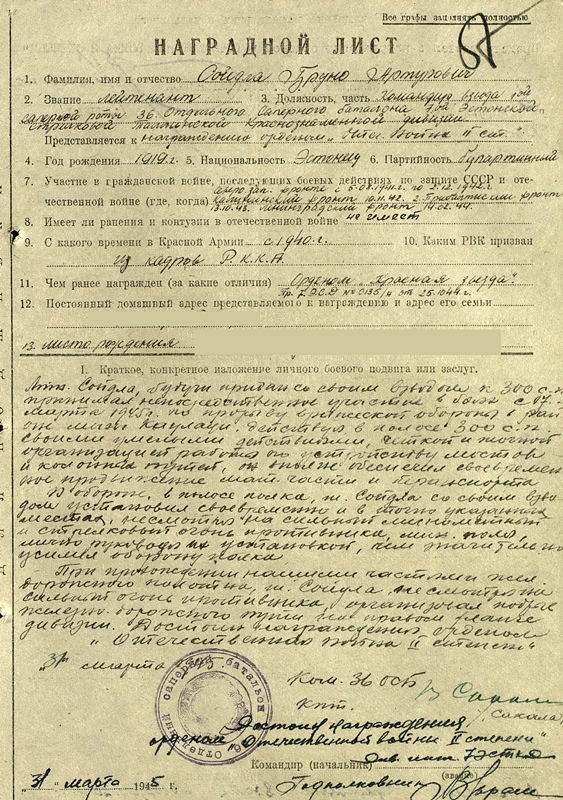 Все графы заполнять полностью
57
НАГРАДНОЙ ЛИСТ
1. Фамилия, имя и отчество Сойдла Бруно Артурович
2. Звание лейтенант 3. Должность, часть Командир взвода 1-ой
саперной роты 36 Отдельного Саперного батальона 7-ой Эстонской
стрелковой Таллинской Краснознаменной дивизии
Представляется к награждению орденом „Отеч. Война II ст."
4. Год рождения 1919 г. 5. Национальность Эстонец 6. Партийность беспартийный
7. Участие в гражданской войне, последующих боевых действиях по защите СССР и оте-
чественной войне (где, когда) фронте с по 2.12.1942 г.
Калининский фронт 10.11.42. 2. Прибалтийский фронт
13.10.43. Ленинградский фронт 14.02.44.
8. Имеет ли ранения и контузии в отечественной войне не имеет
9. С какого времени в Красной Армии с 1940 г. 10. Каким РВК призван
из кадров Р.К.К.А.
11. Чем ранее награжден (за какие отличия) Орденом „Красная звезда".
Пр. 7 ЭСД № 0135/н от 25.10.44 г.
12. Постоянный домашний адрес представляемого к награждению и адрес его семьи
13. место рождения
I. Краткое, конкретное изложение личного боевого подвига или заслуг.
Сойдла, будучи придан со своим взводом к 300 с.п.
принимал непосредственное участие в боях с 07.
марта 1945 г. по прорыву вражеской обороны в рай-
оне Действуя в полосе 300 с.п.
своими умелыми действиями, четкой и точной
организацией работ по устройству мостов
и колонных путей, он вполне обеспечил своевремен-
ное продвижение мат. части и
В обороне, в полосе полка, Сойдла со своим взво-
дом установил своевременно и в точно указанных
местах, несмотря на сильный минометный
и стрелковый огонь противника, мин. поля,
лично руководя их установкой, чем значительно
усилил оборону полка.
При прохождении нашими частями жел.
дорожного полотна, Сойдла несмотря на
сильный огонь противника, организовал
железно-дорожного пути на правом фланге
дивизии. Достоин награждения орденом
„Отечественная война II степени"
„31" марта 1945 г.
Отдельный саперный батальон
Ком. 36 ОСБ
кпт.
Достоин награждения
орденом „Отечественной войны II степени"
Командир (начальник) Див. инж. 7 Эстк
(звание)
„31" марта 1945 г. Подполковник